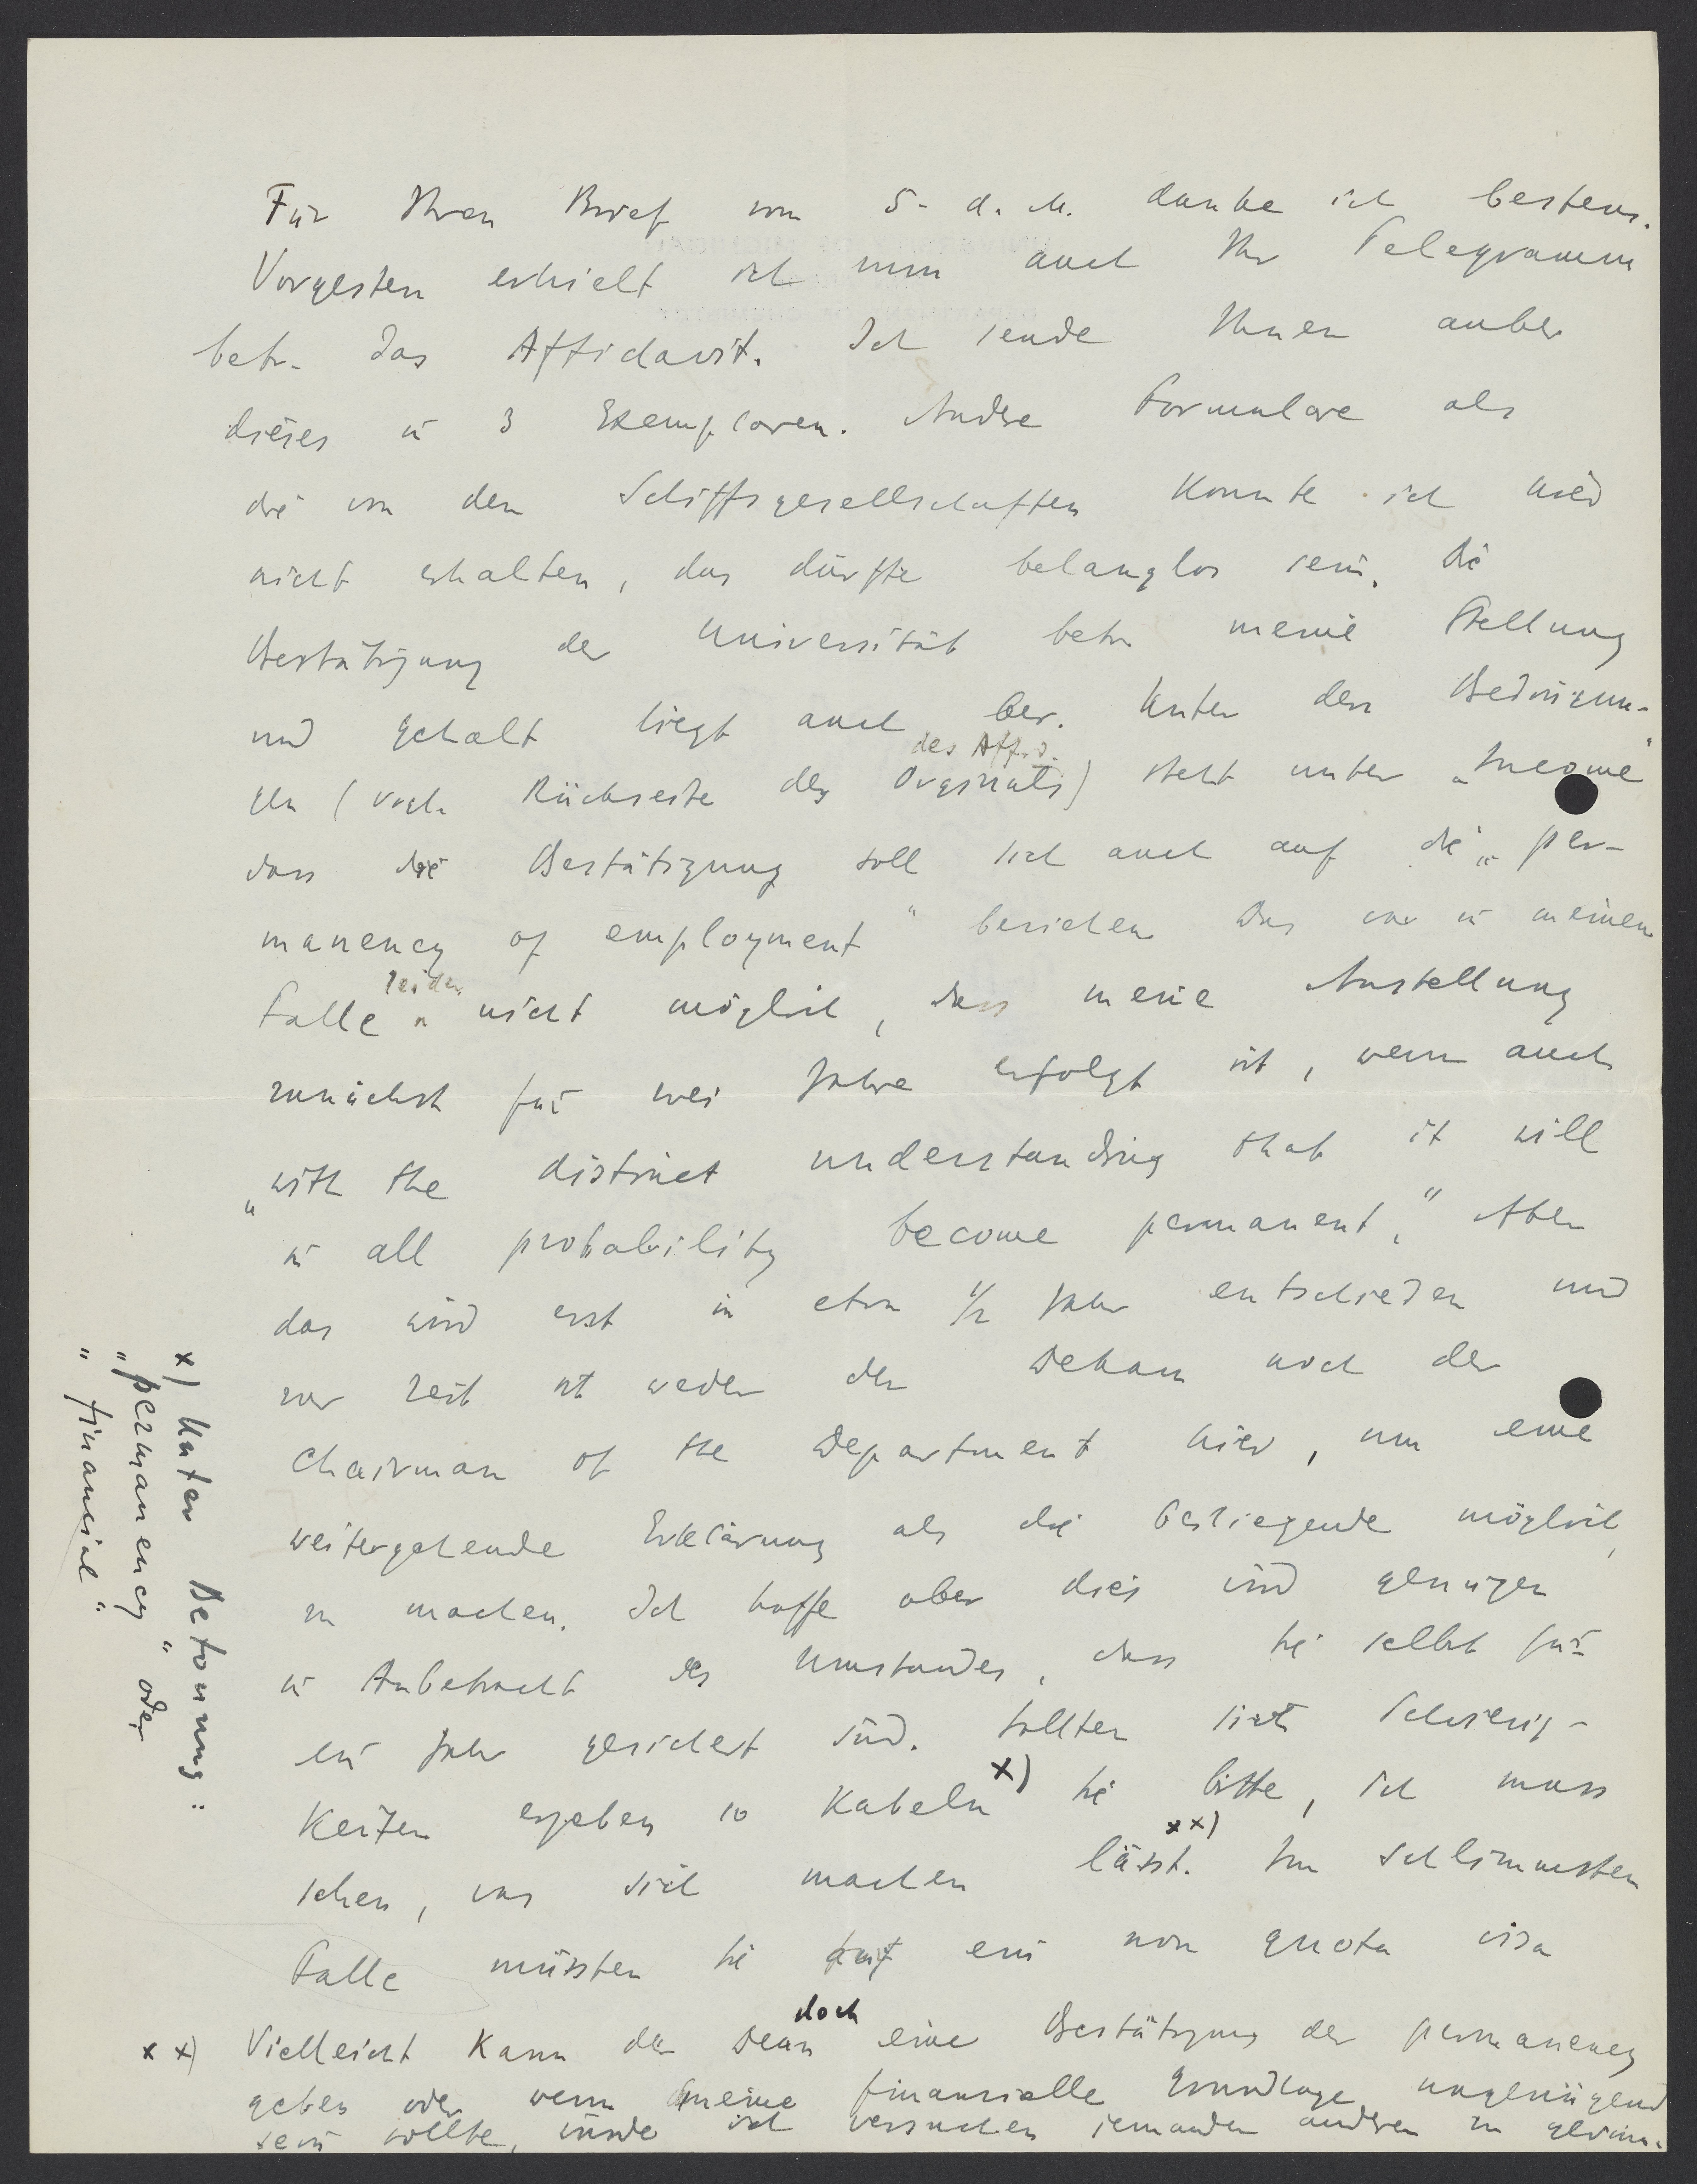 Für Ihren Brief vom 5. d. M. danke ich bestens.
Vorgestern erhielt ich nun auch Ihr Telegramm
betr. das Affidavit. Ich sende Ihnen anbei
dieses in 3 Exemplaren. Andre Formulare als
die von den Schiffsgesellschaften konnte ich hier
nicht erhalten, das dürfte belanglos sein. Die
Bestätigung der Universität betr. meine Stellung
und Gehalt liegt auch bei. Unter den Bedingun-
des Affid.
gen (vrgl. Rückseite des Originals) steht unter „Income"
dass die Bestätigung soll sich auch auf die „per-
manency of employment" beziehen Das war in meinem
Falle leider nicht möglich, dass meine Anstellung
zunächst für zwei Jahre erfolgt ist, wenn auch
„with the distinct understanding that it will
in all probability become permanent." Aber
das wird erst in etwa 1/2 Jahr entschieden und
zur Zeit ist weder der Dekan noch der
Chairman of the Department hier, um eine
weitergehende Erklärung als die beiliegende möglich
zu machen. Ich hoffe aber dies wird genügen
in Anbetracht des Umstandes, dass Sie selbst für
ein Jahr gesichert sind. Sollten sich Schwierig-
keiten ergeben so kabeln x) Sie bitte, ich muss
sehen, was sich machen lässt. xx) Im schlimmsten
Falle müssten Sie ein non quota visa
xx) Vielleicht kann der Dean doch eine Bestätigung der permanency
geben oder wenn meine finanzielle Grundlage ungenügend
sein sollte, würde ich versuchen jemanden andren zu gewinn.
x) Unter Betonung:
„permanency" oder
„financial".